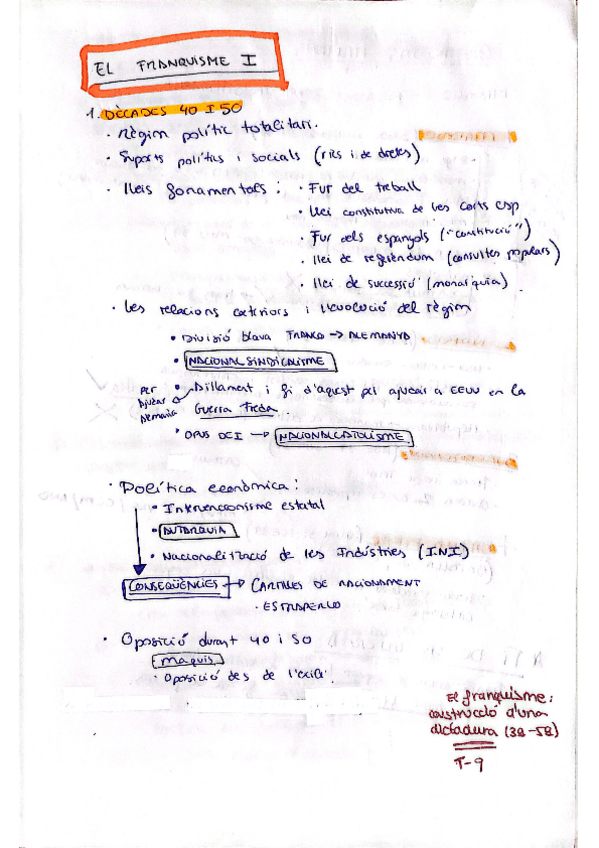 EL FRANQUISME I
1. DÈCADES 40 I 50
· Règim polític totalitari.
· Suports polítics i socials (rics i de dretes)
· Lleis fonamentals : · Fur del treball
· Llei constitutiva de les corts esp
· Fur dels espanyols ("constitució")
· llei de referèndum (consultes populars)
· llei de successió (monarquia)
· Les relacions exteriors i l'evolució del règim
· Divisió blava FRANCO → ALEMANYA
· NACIONALSINDICALISME
Per ajudar Alemania
· Aïllament i fi d'aquest per ajudar a EEUU en la
Guerra Freda.
· OPUS DEI → NACIONALCATOLISME
· Política econòmica:
· Intervencionisme estatal
· AUTARQUIA
· Nacionalització de les Indústries (I.N.I)
CONSEQÜÈNCIES → CARTILLES DE RACIONAMENT
· ESTRAPERLO
· Oposició durant 40 i 50
maquis
· Oposició des de l'exili
El franquisme:
construcció d'una
dictadura (39-59)
T-9